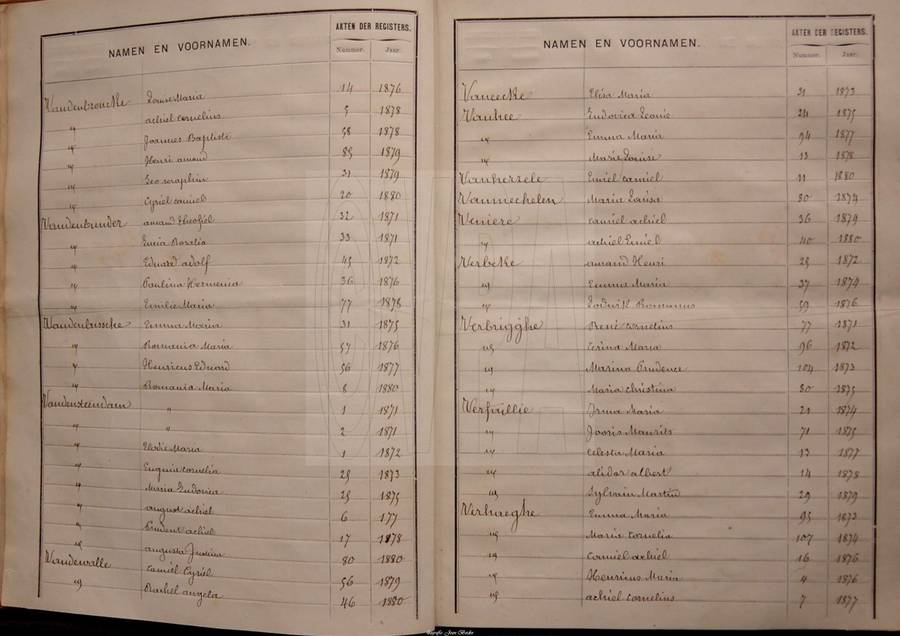 NAMEN EN VOORNAMEN. AKTEN DER REGISTERS.
Nummer. Jaar.
Vandenbroucke Louise Maria 14 1876
" achiel cornelius 5 1878
" Joannes Baptiste 58 1878
" Henri amand 85 1879
" Leo seraphin 31 1879
" Cyriel camiel 20 1880
Vandenbunder amand Theofiel 32 1871
" Lucia Rosalia 33 1871
" Eduard adolf 45 1872
" Paulina Hermenia 36 1876
" Emilie Maria 77 1875
Vandenbussche Emma Maria 31 1875
" Romania Maria 57 1876
" Henricus Eduard 56 1877
" Romania Maria 8 1880
Vandensteendam " 1 1871
" " 2 1871
" Elodie Maria 1 1872
" Eugenia cornelia 25 1873
" Maria Ludovica 25 1875
" august achiel 6 177
" Prudent achiel 17 1878
" augusta Justina 80 1880
Vandewalle camiel Cyriel 56 1879
" Rachel angela 46 1880
NAMEN EN VOORNAMEN. AKTEN DER REGISTERS.
Nummer. Jaar.
Vaneecke Elisa Maria 31 1873
Vanhee Ludovica Leonie 24 1875
" Emma Maria 94 1877
" Marie Louise 13 1878
Vanherzele Emiel camiel 11 1880
Vanmechelen Maria Louisa 80 1874
Veniere camiel achiel 36 1874
" achiel Emiel 40 1880
Verbeke amand Henri 25 1872
" Emma Maria 37 1874
" Lodewik Romanus 59 1876
Verbrigghe René cornelius 77 1871
" Maria 96 1872
" Marina Prudence 104 1873
" Maria christina 80 1875
Verfaillie Irma Maria 21 1874
" Jooris Maurits 71 1875
" celesta Maria 13 1877
" alidor albert 14 1878
" Sylvain Martin 29 1879
Verhaeghe Emma Maria 95 1873
" Maria cornelia 107 1874
" camiel achiel 16 1876
" Henrius Maria 4 1876
" achiel cornelius 7 1877